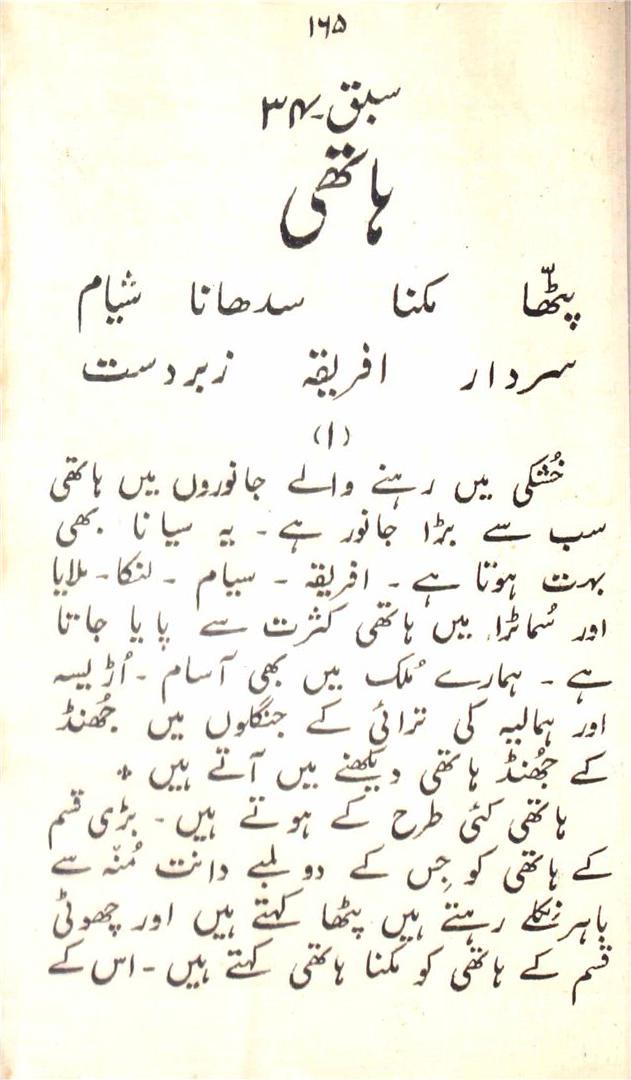 ۱۶۵
سبق ۔ ۳۴
ہاتھی
پٹّھا مکنا سدھانا شیام
سردار افریقہ زبردست
(۱)
خُشکی میں رہنے والے جانوروں میں ہاتھی
سب سے بڑا جانور ہے ۔ یہ سیانا بھی
بہت ہوتا ہے ۔ افریقہ ۔ سیام ۔ لنکا ۔ ملایا
اور سُماٹرا میں ہاتھی کثرت سے پایا جاتا
ہے ۔ ہمارے مُلک میں بھی آسام ۔ اُڑیسہ
اور ہمالیہ کی ترائی کے جنگلوں میں جھُنڈ
کے جھُنڈ ہاتھی دیکھنے میں آتے ہیں *
ہاتھی کئی طرح کے ہوتے ہیں ۔ بڑی قسم
کے ہاتھی کو جِس کے دو لمبے دانت مُنّہ سے
باہر نِکلے رہتے ہیں پٹھا کہتے ہیں اور چھوٹی
قسم کے ہاتھی کو مکنا ہاتھی کہتے ہیں ۔ اس کے